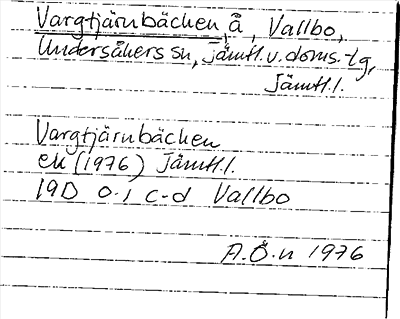 Vargtjärnbäcken, å, Vallbo,
Undersåkers sn, Jämtl. v. doms. tg,
Jämtl. l.
Vargtjärnbäcken
ek (1976) Jämtl. l.
19D 0-1 c-d Vallbo
A. Ö-n 1976